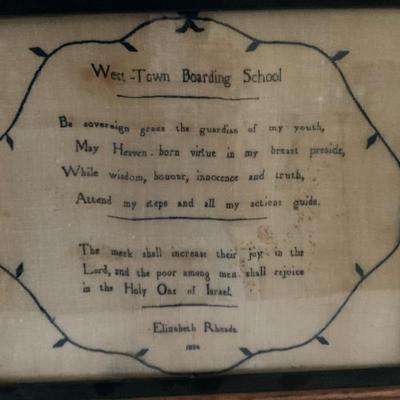 West-Town Boarding School
Be sovereign grace the guardian of my youth,
May Heaven-born virtue in my breast preside,
While wisdom, honour, innocence and truth,
Attend my steps and all my actions guide.
The meek shall increase their joy in the
Lord, and the poor among men shall rejoice
in the Holy One of Israel.
Elizabeth Rhoads